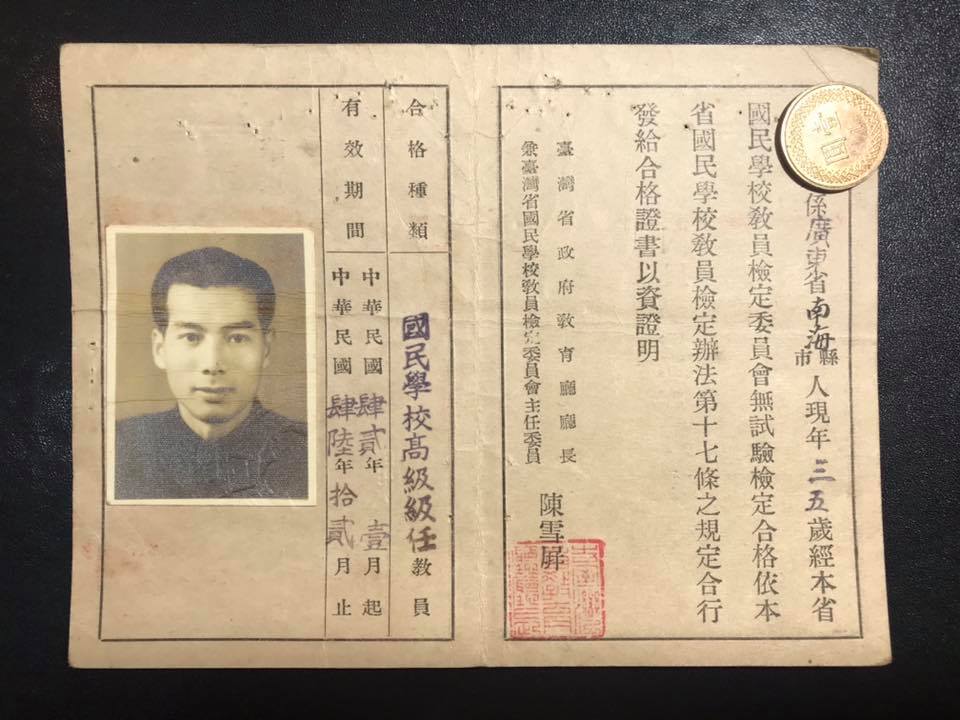 係廣東省南海縣市人現年三五歲經本省
國民學校教員檢定委員會無試驗檢定合格依本
省國民學校教員檢定辦法第十七條之規定合行
發給合格證書以資證明
臺灣省政府教育廳廳長
兼臺灣省國民學校教員檢定委員會主任委員
陳雪屏
合格種類 國民學校高級級任教員
有效期間
中華民國肆貳年壹月起
中華民國肆陸年拾貳月止
壹圓